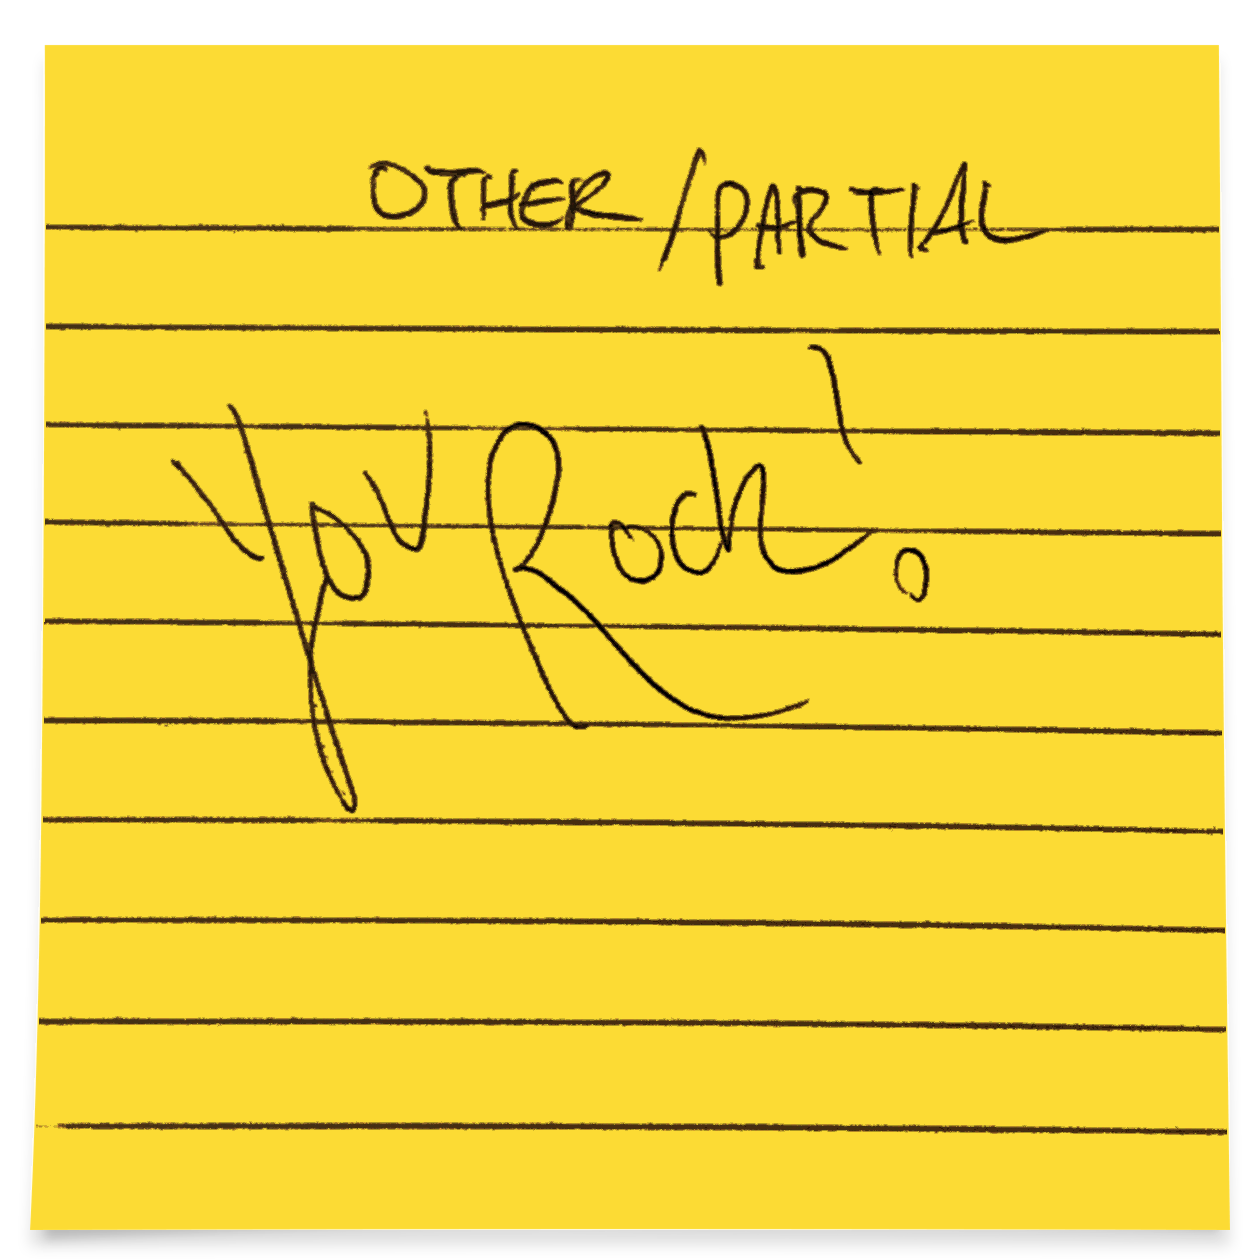 OTHER/PARTIAL
You Rock!